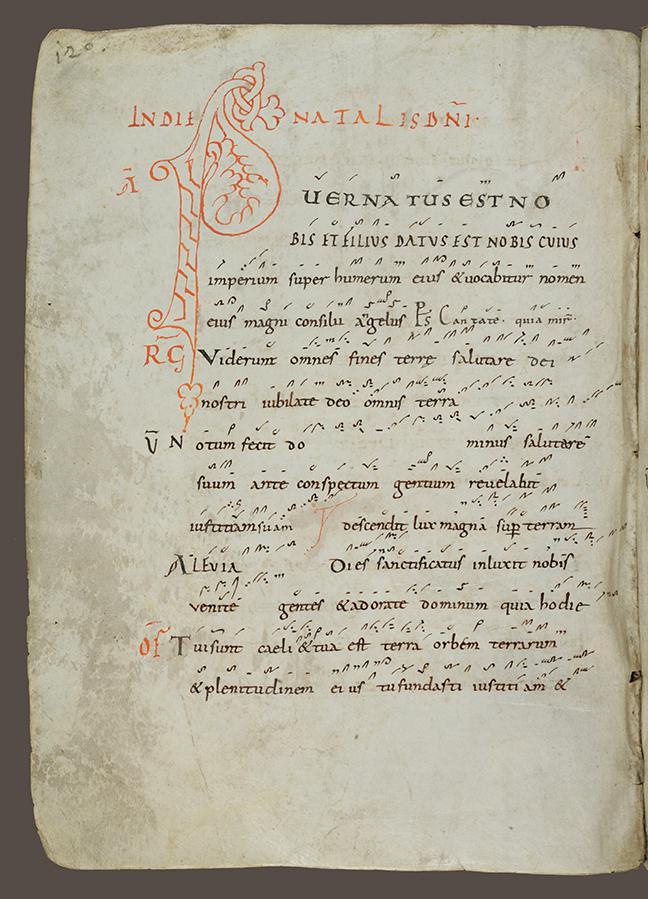 120.
IN DIE NATALIS DNI
A PUER NATUS EST NO
BIS ET FILIUS DATUS EST NOBIS CUIUS
imperium super humerum eius & vocabitur nomen
eius magni consilii angelus Ps Cantate quia mir
RG Viderunt omnes fines terre salutare dei
nostri iubilate deo omnis terra
V Notum fecit do minus salutare
suum ante conspectum gentium revelabit
iustitiam suam descendit lux magna super terram
ALEVIA Dies sanctificatus inluxit nobis
venite gentes & adorate dominum quia hodie
OF Tui sunt caeli & tua est terra orbem terrarum
& plenitudinem eius tu fundasti iustitiam &